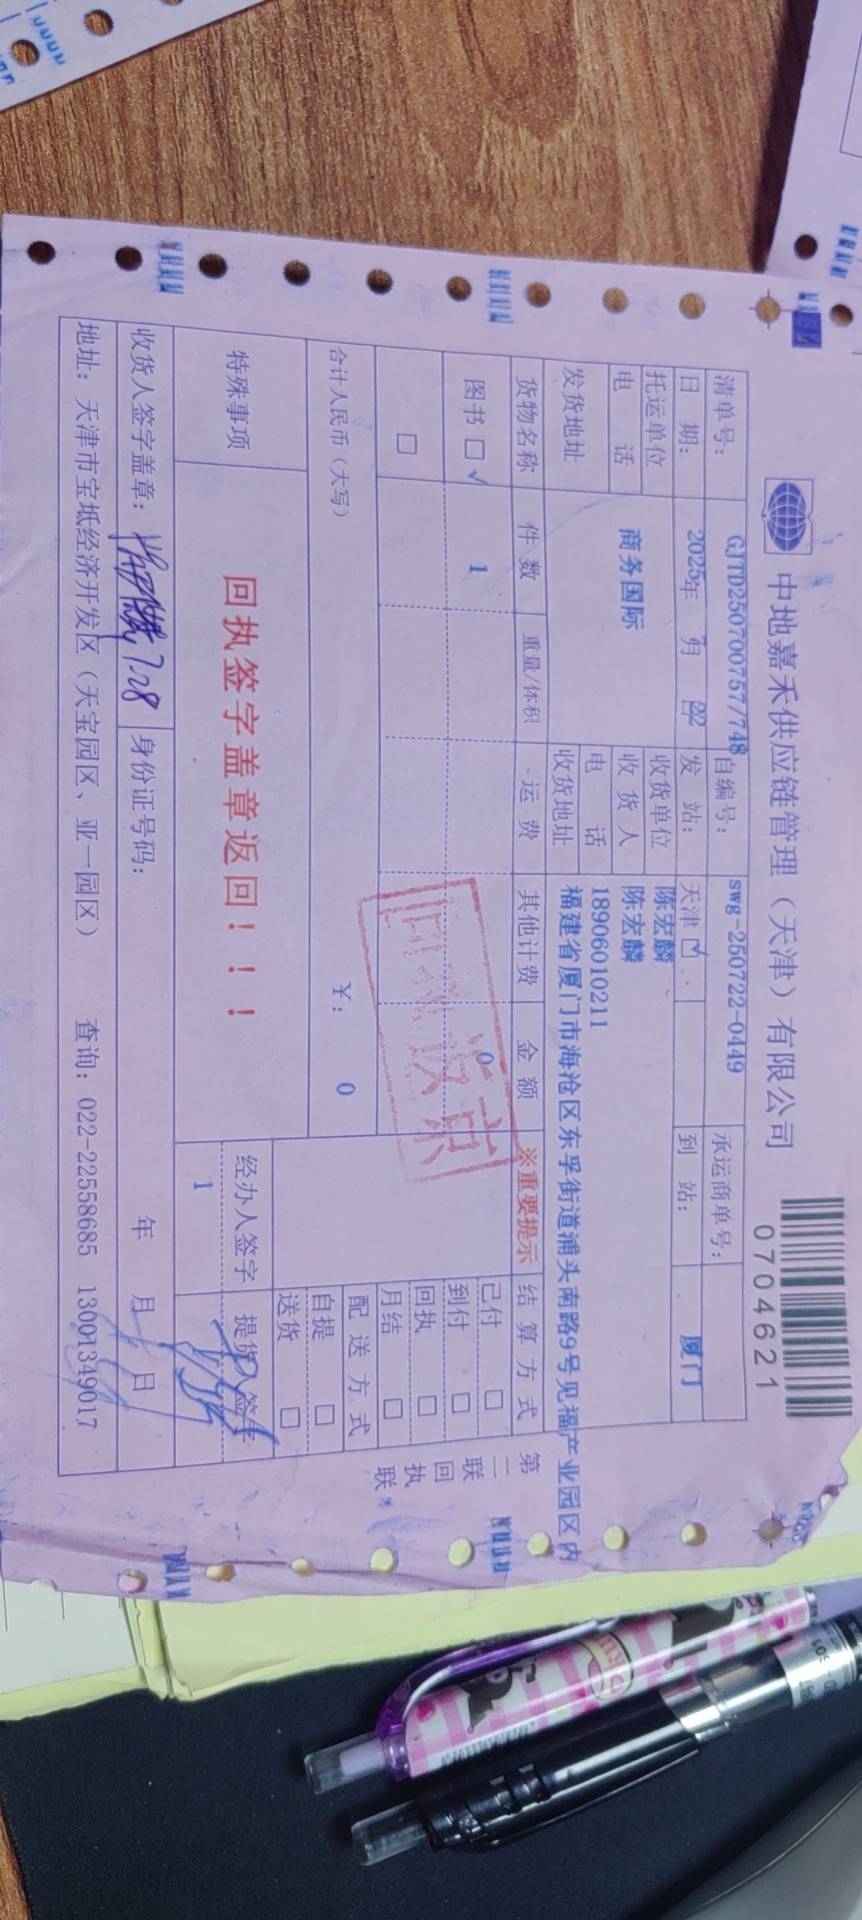 中地嘉禾供应链管理（天津）有限公司
0704621
清单号： GJTD2507007577748 自编号： swg-250722-0449 承运商单号：
日 期： 2025年 7月 22日 发 站： 天津 到 站： 厦门
托运单位 商务国际 收货单位 陈宏麟
收 货 人 陈宏麟
电 话 电 话 18906010211
发货地址 收货地址 福建省厦门市海沧区东孚街道浦头南路9号见福产业园区内
货物名称 件 数 重量/体积 运 费 其他计费 金 额 ※重要提示 结 算 方 式
图书 □ ✓ 1 0 已付 □
到付 □
□ 回执 □
月结 □
合计人民币（大写） ￥： 0 配 送 方 式
自提 □
送货 □
特殊事项 回执签字盖章返回！！！ 经办人签字 提货人签字
1
收货人签字盖章： 7.28 身份证号码： 年 月 日
地址：天津市宝坻经济开发区（天宝园区、亚一园区） 查询：022-22558685 13001349017
第二联 回执联